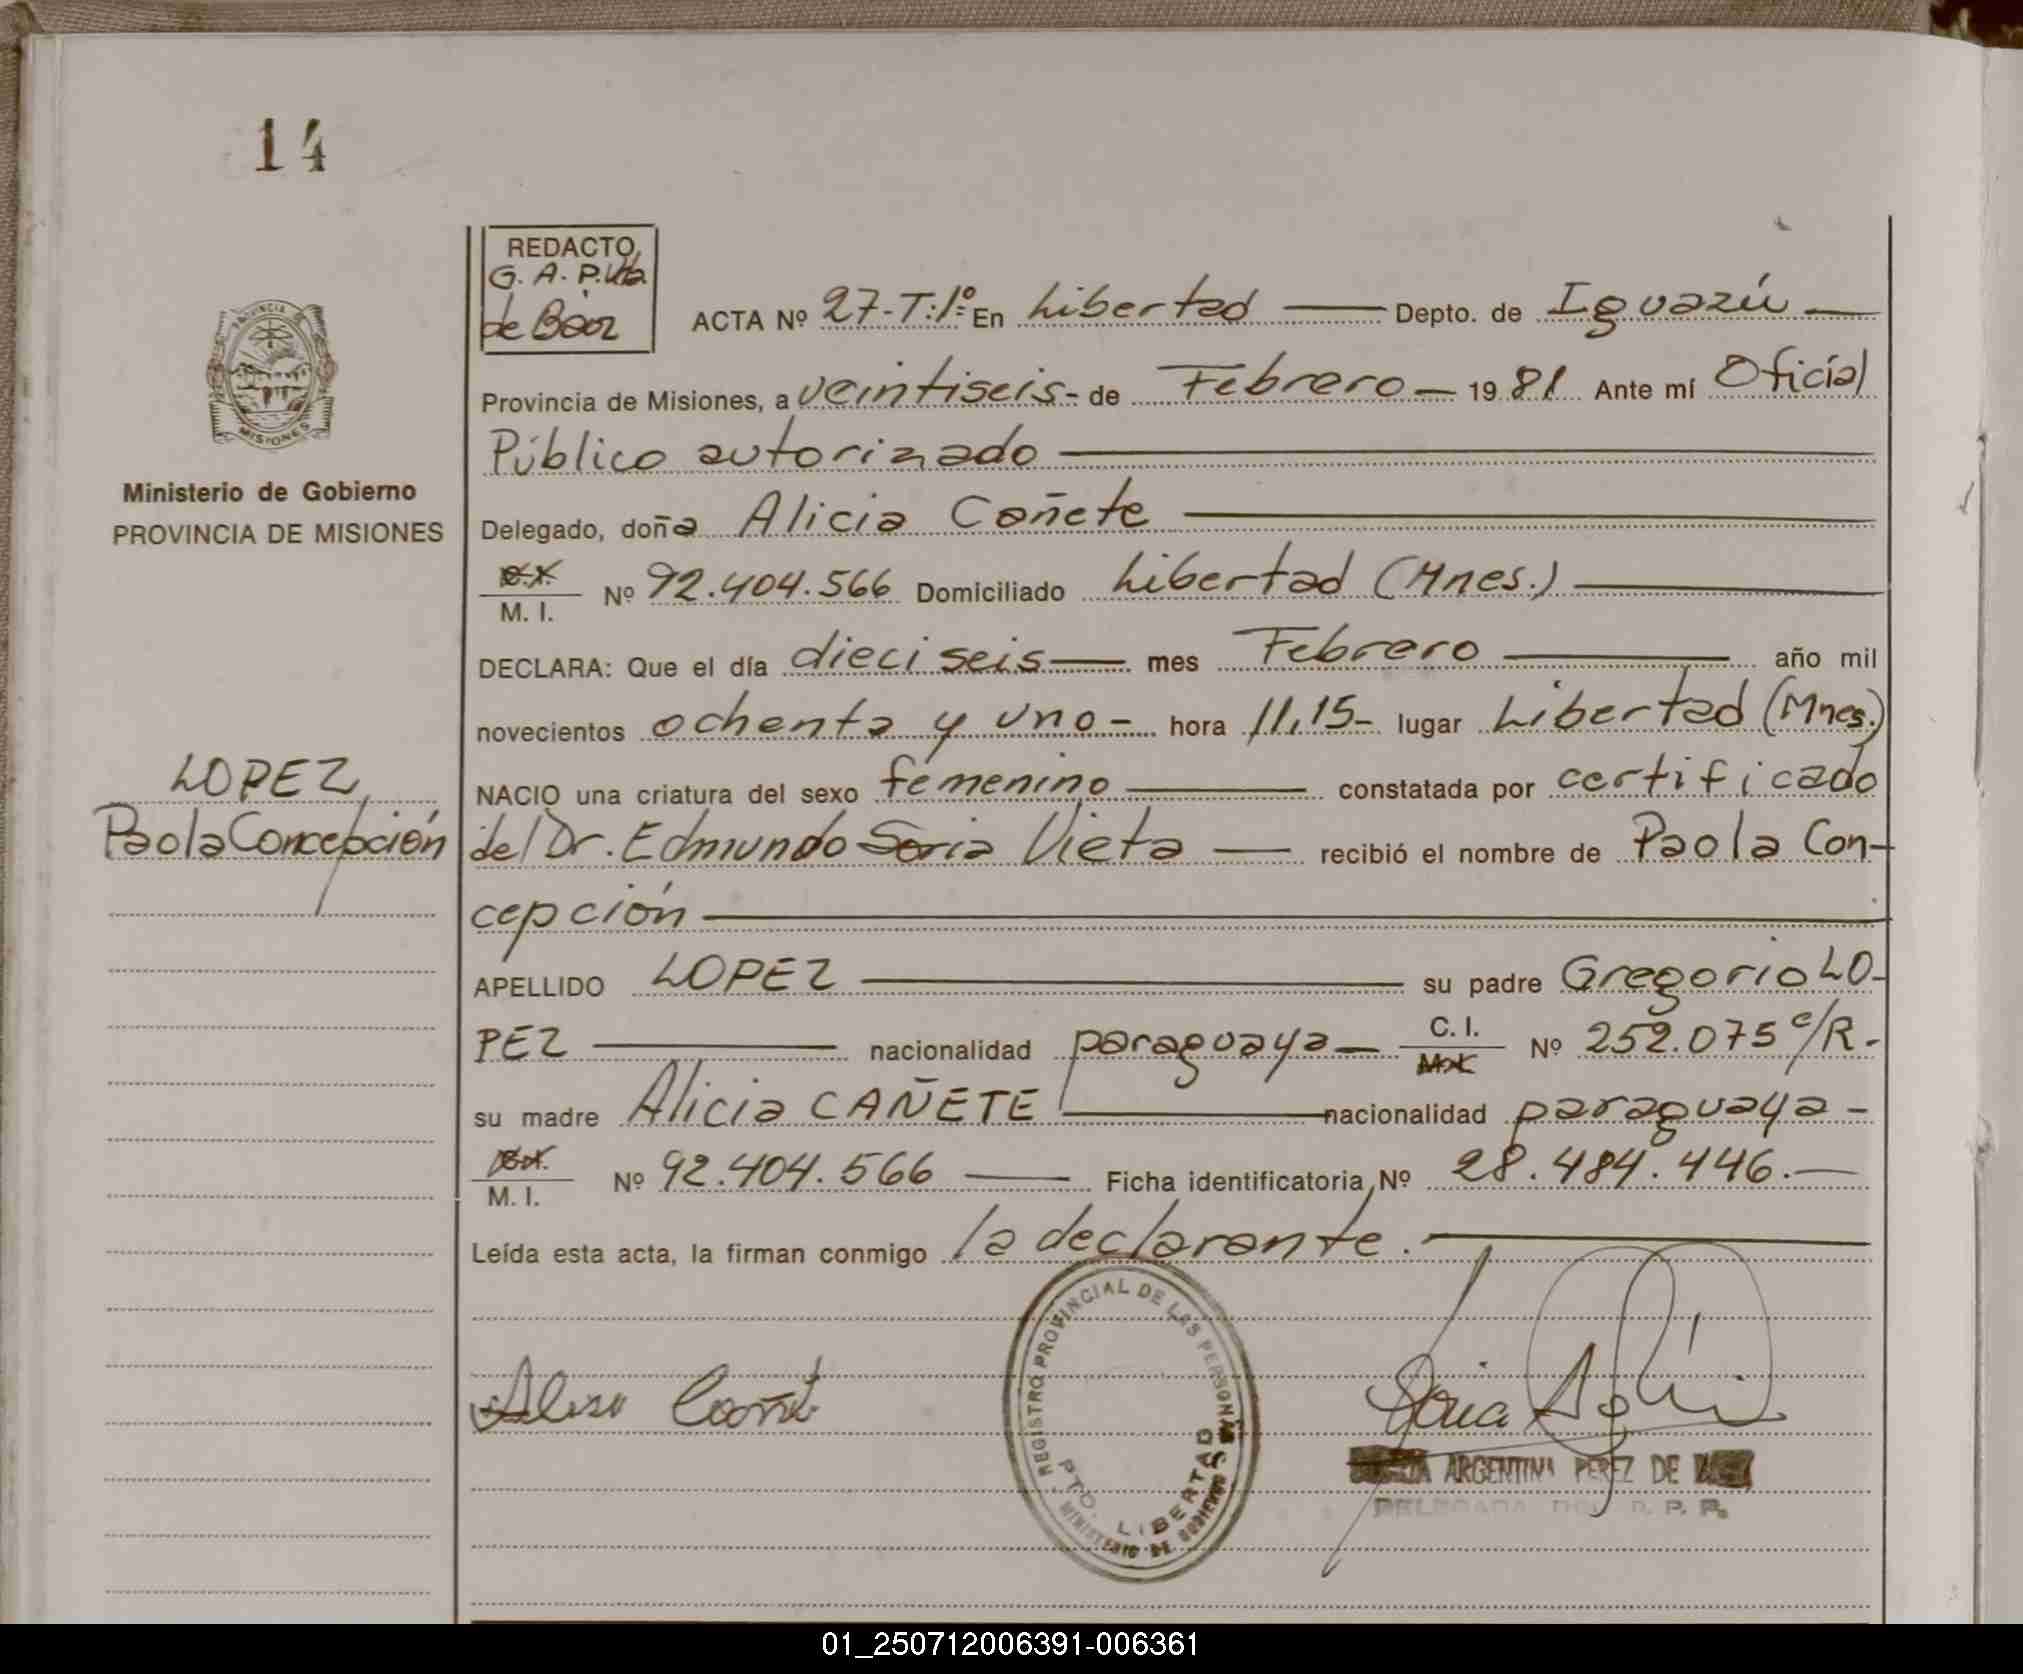 14
REDACTO
G. A. P. Vda
de Báez
ACTA Nº 27-T:1º En Libertad Depto. de Iguazú
Provincia de Misiones, a veintiseis - de Febrero 1981 Ante mí Oficial
Público autorizado
PROVINCIA DE
MISIONES
Ministerio de Gobierno
PROVINCIA DE MISIONES
Delegado, doña Alicia Cañete
C.I.
M. I. Nº 92.404.566 Domiciliado Libertad (Mnes.)
DECLARA: Que el día dieciseis mes Febrero año mil
novecientos ochenta y uno - hora 11,15- lugar Libertad (Mnes.)
LOPEZ
Paola Concepción
NACIO una criatura del sexo femenino constatada por certificado
del Dr. Edmundo Soria Vieta recibió el nombre de Paola Con-
cepción
APELLIDO LOPEZ su padre Gregorio LO-
PEZ nacionalidad paraguaya C. I. Nº 252.075 c/R.-
M. I.
su madre Alicia CAÑETE nacionalidad paraguaya -
C.I.
M. I. Nº 92.404.566 Ficha identificatoria Nº 28.484.446.
Leída esta acta, la firman conmigo la declarante.
REGISTRO PROVINCIAL DE LAS PERSONAS
PTO. LIBERTAD
MINISTERIO DE GOBIERNO
ARGENTINA PEREZ DE
DELEGADA DEL R. P. P.
01_250712006391-006361